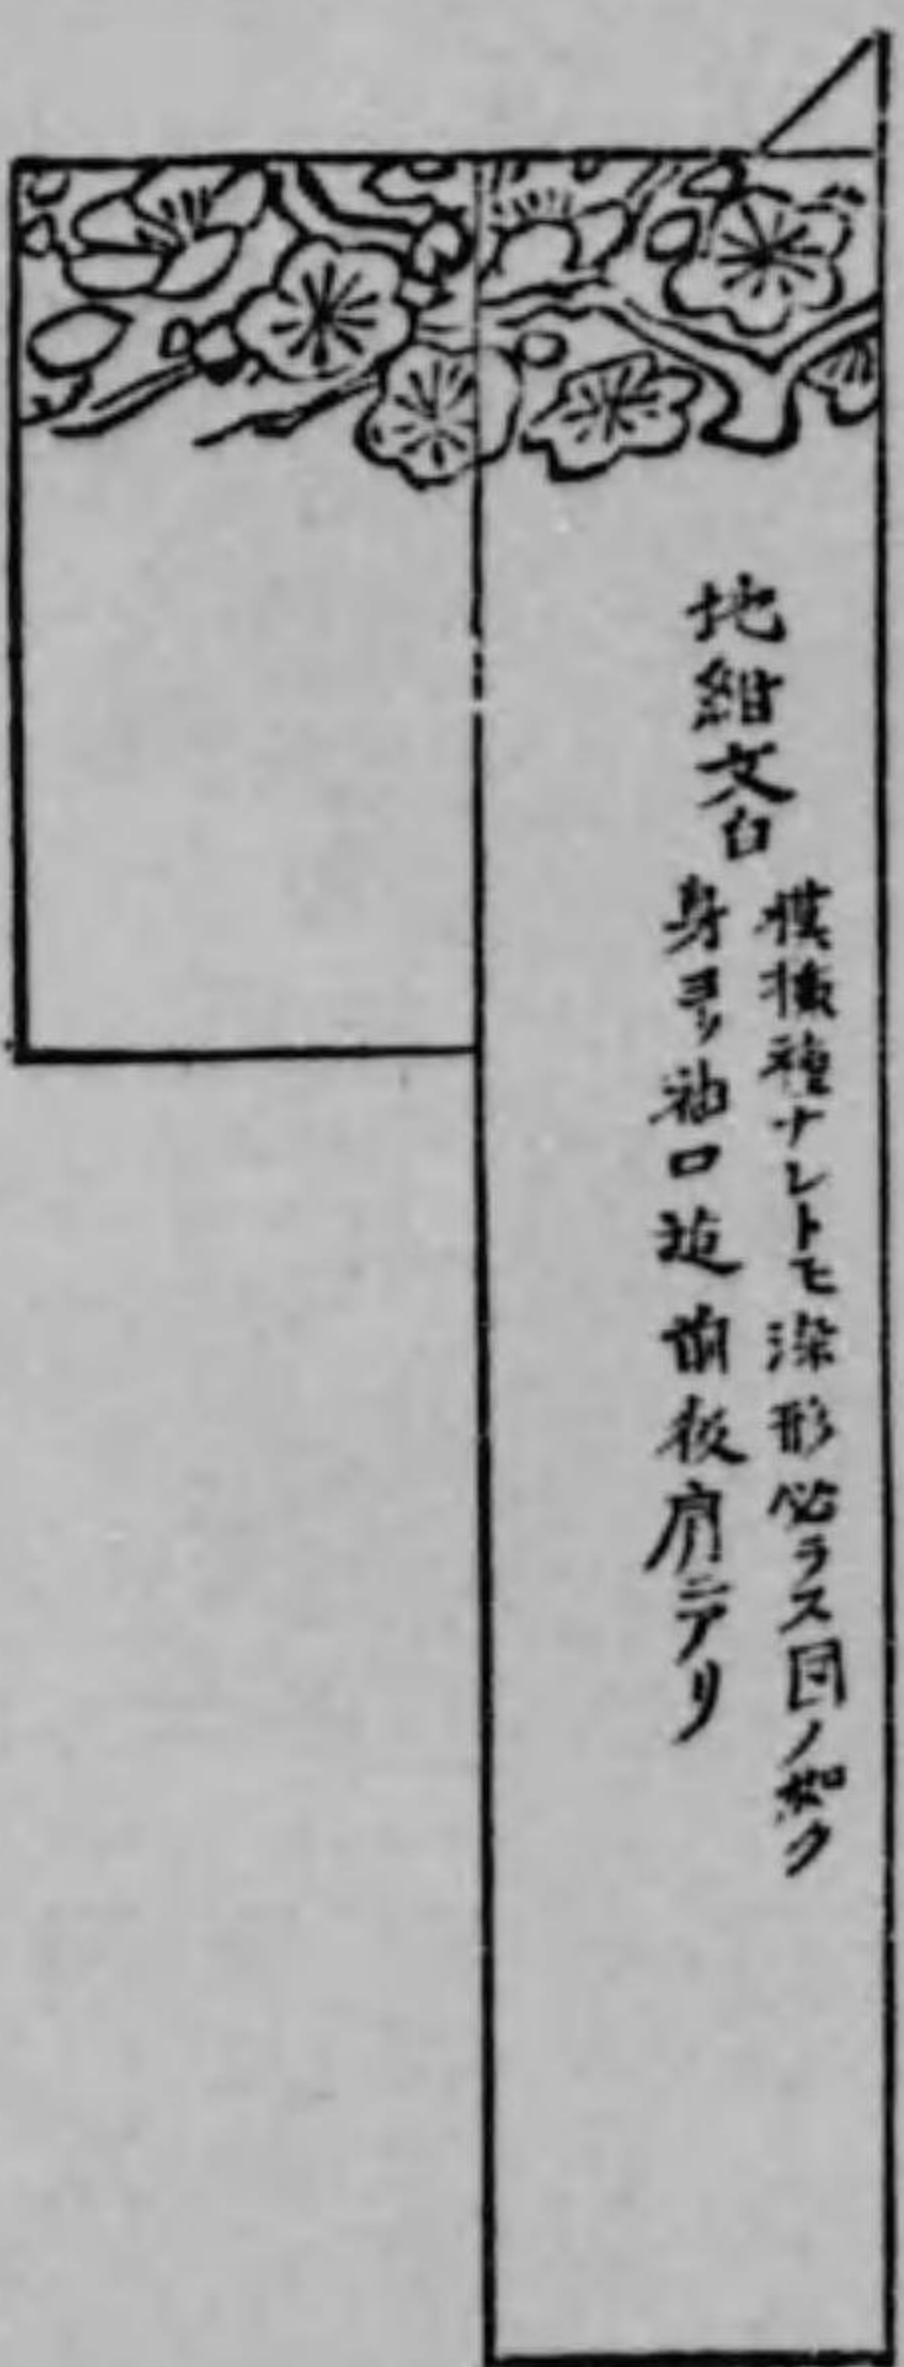 地紺文白
模様種ナレトモ染形必ラス図ノ如ク
身ヨリ袖口迄前後肩ニアリ